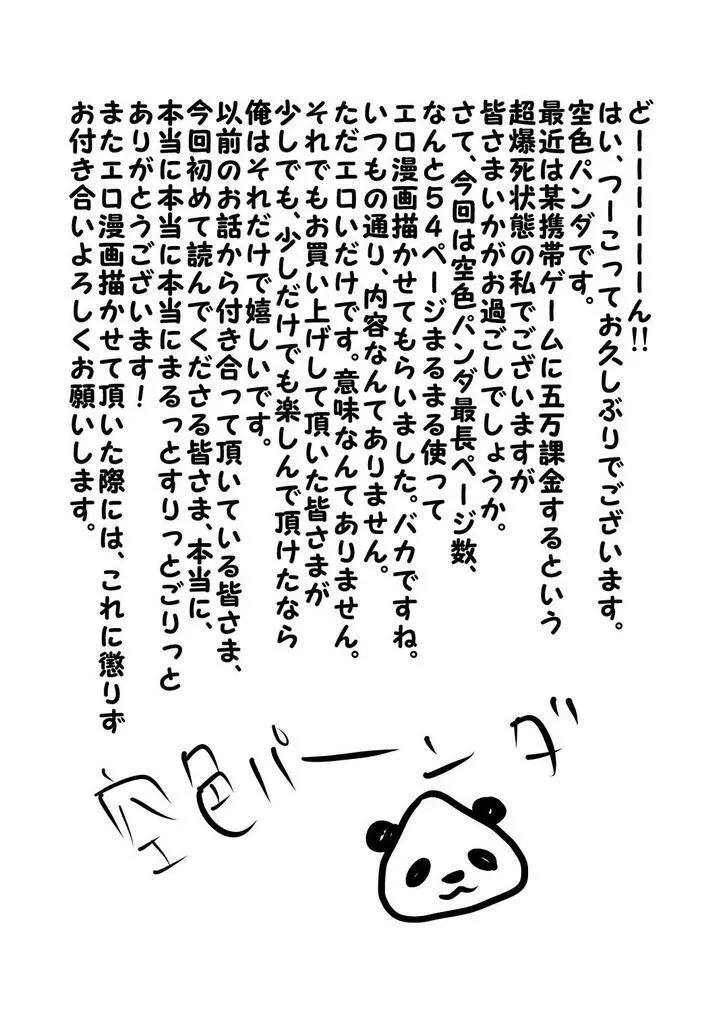 どーーーーーん!!
はい、つーこってお久しぶりでございます。
空色パンダです。
最近は某携帯ゲームに五万課金するという
超爆死状態の私でございますが
皆さまいかがお過ごしでしょうか。
さて、今回は空色パンダ最長ページ数、
なんと54ページまるまる使って
エロ漫画描かせてもらいました。バカですね。
いつもの通り、内容なんてありません。
ただエロいだけです。意味なんてありません。
それでもお買い上げして頂いた皆さまが
少しでも、少しだけでも楽しんで頂けたなら
俺はそれだけで嬉しいです。
以前のお話から付き合って頂いている皆さま、
今回初めて読んでくださる皆さま、本当に、
本当に本当に本当にまるっとすりっとごりっと
ありがとうございます!
またエロ漫画描かせて頂いた際には、これに懲りず
お付き合いよろしくお願いします。
空色パーンダ